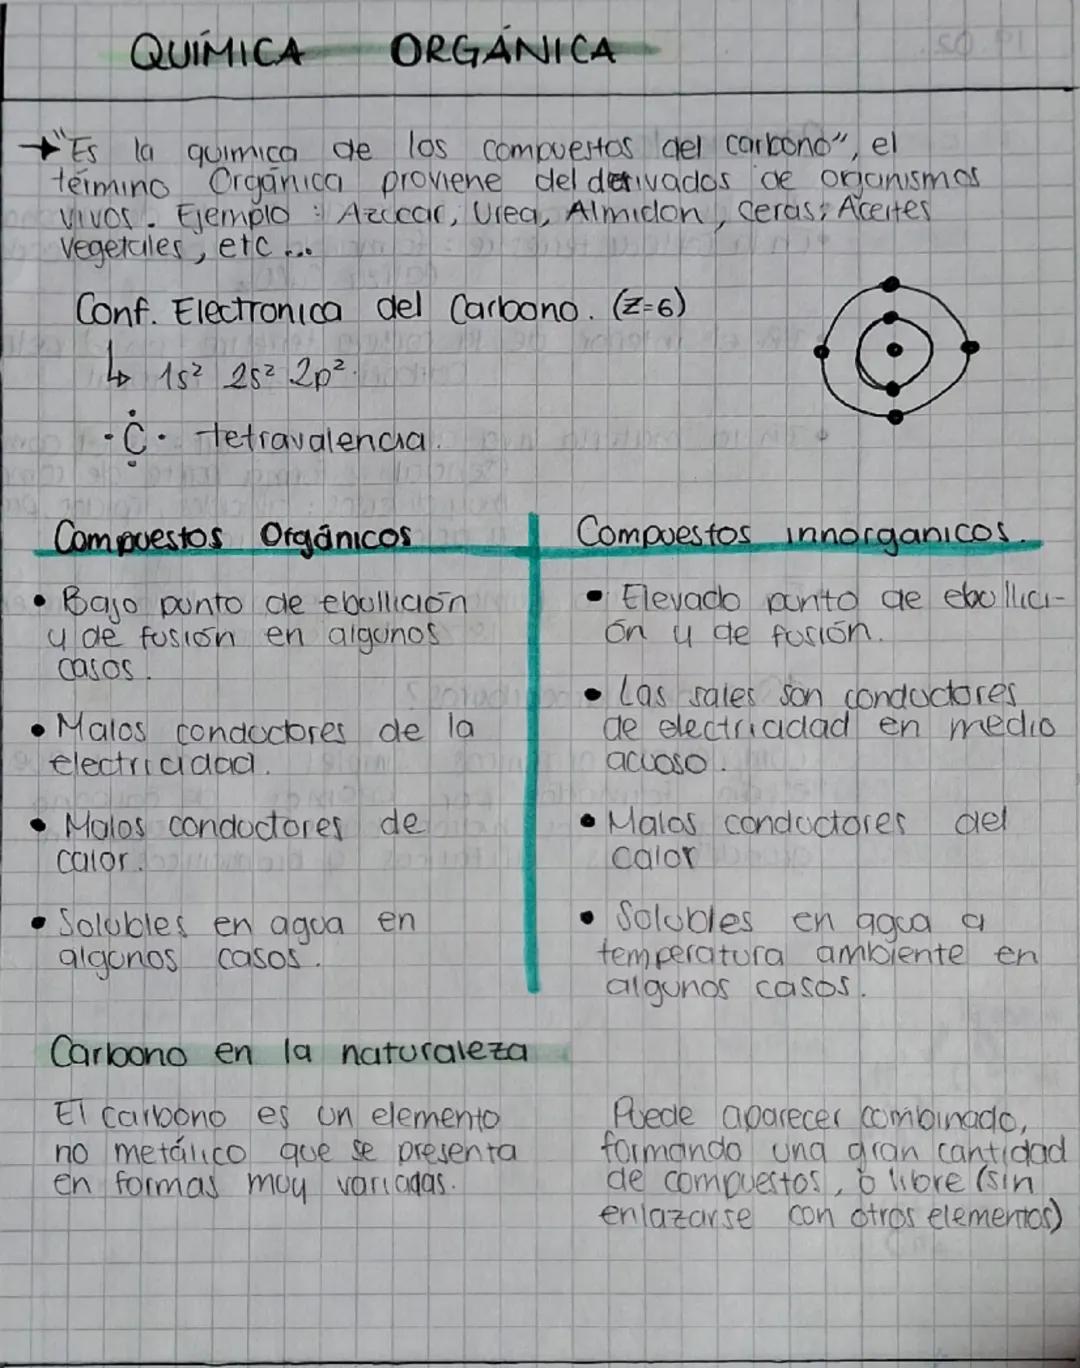 QUÍMICA ORGÁNICA
→"Es la quimica de los compuestos del carbono", el
término Orgánica proviene del derivados de organismos
vivos. Ejemplo: Azúcar, Urea, Almidon, Ceras, Aceites
vegetales, etc...
Conf. Electronica del Carbono. (Z=6)
↳ 1s² 2s² 2p².
·C· tetravalencia.
Compuestos Orgánicos
• Bajo punto de ebullición
y de fusión en algunos
casos.
• Malos conductores de la
electricidad.
• Malos conductores de
calor.
• Solubles en agua en
algunos casos.
Compuestos innorganicos.
• Elevado punto de ebullici-
ón y de fusión.
• Las sales son conductores
de electricidad en medio
acuoso.
• Malos conductores del
calor
• Solubles en agua a
temperatura ambiente en
algunos casos.
Carbono en la naturaleza
El carbono es un elemento
no metálico que se presenta
en formas muy variadas.
Puede aparecer combinado,
formando una gran cantidad
de compuestos, o libre (sin
enlazarse con otros elementos)